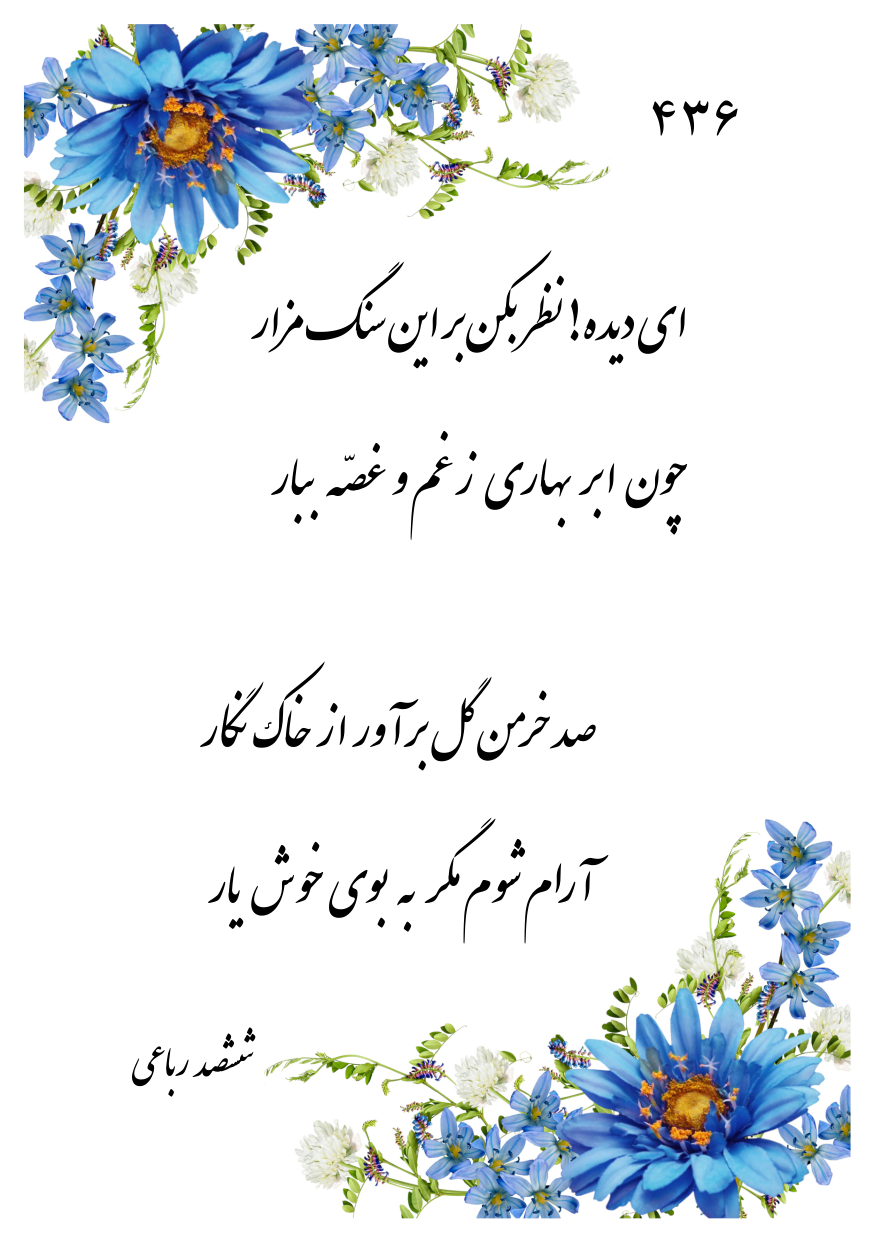 ۴۳۶
ای دیده! نظر بکن بر این سنگ مزار
چون ابر بهاری ز غم و غصّه ببار
صد خرمن گل برآور از خاک نگار
آرام شوم مگر به بوی خوش یار
ششصد رباعی